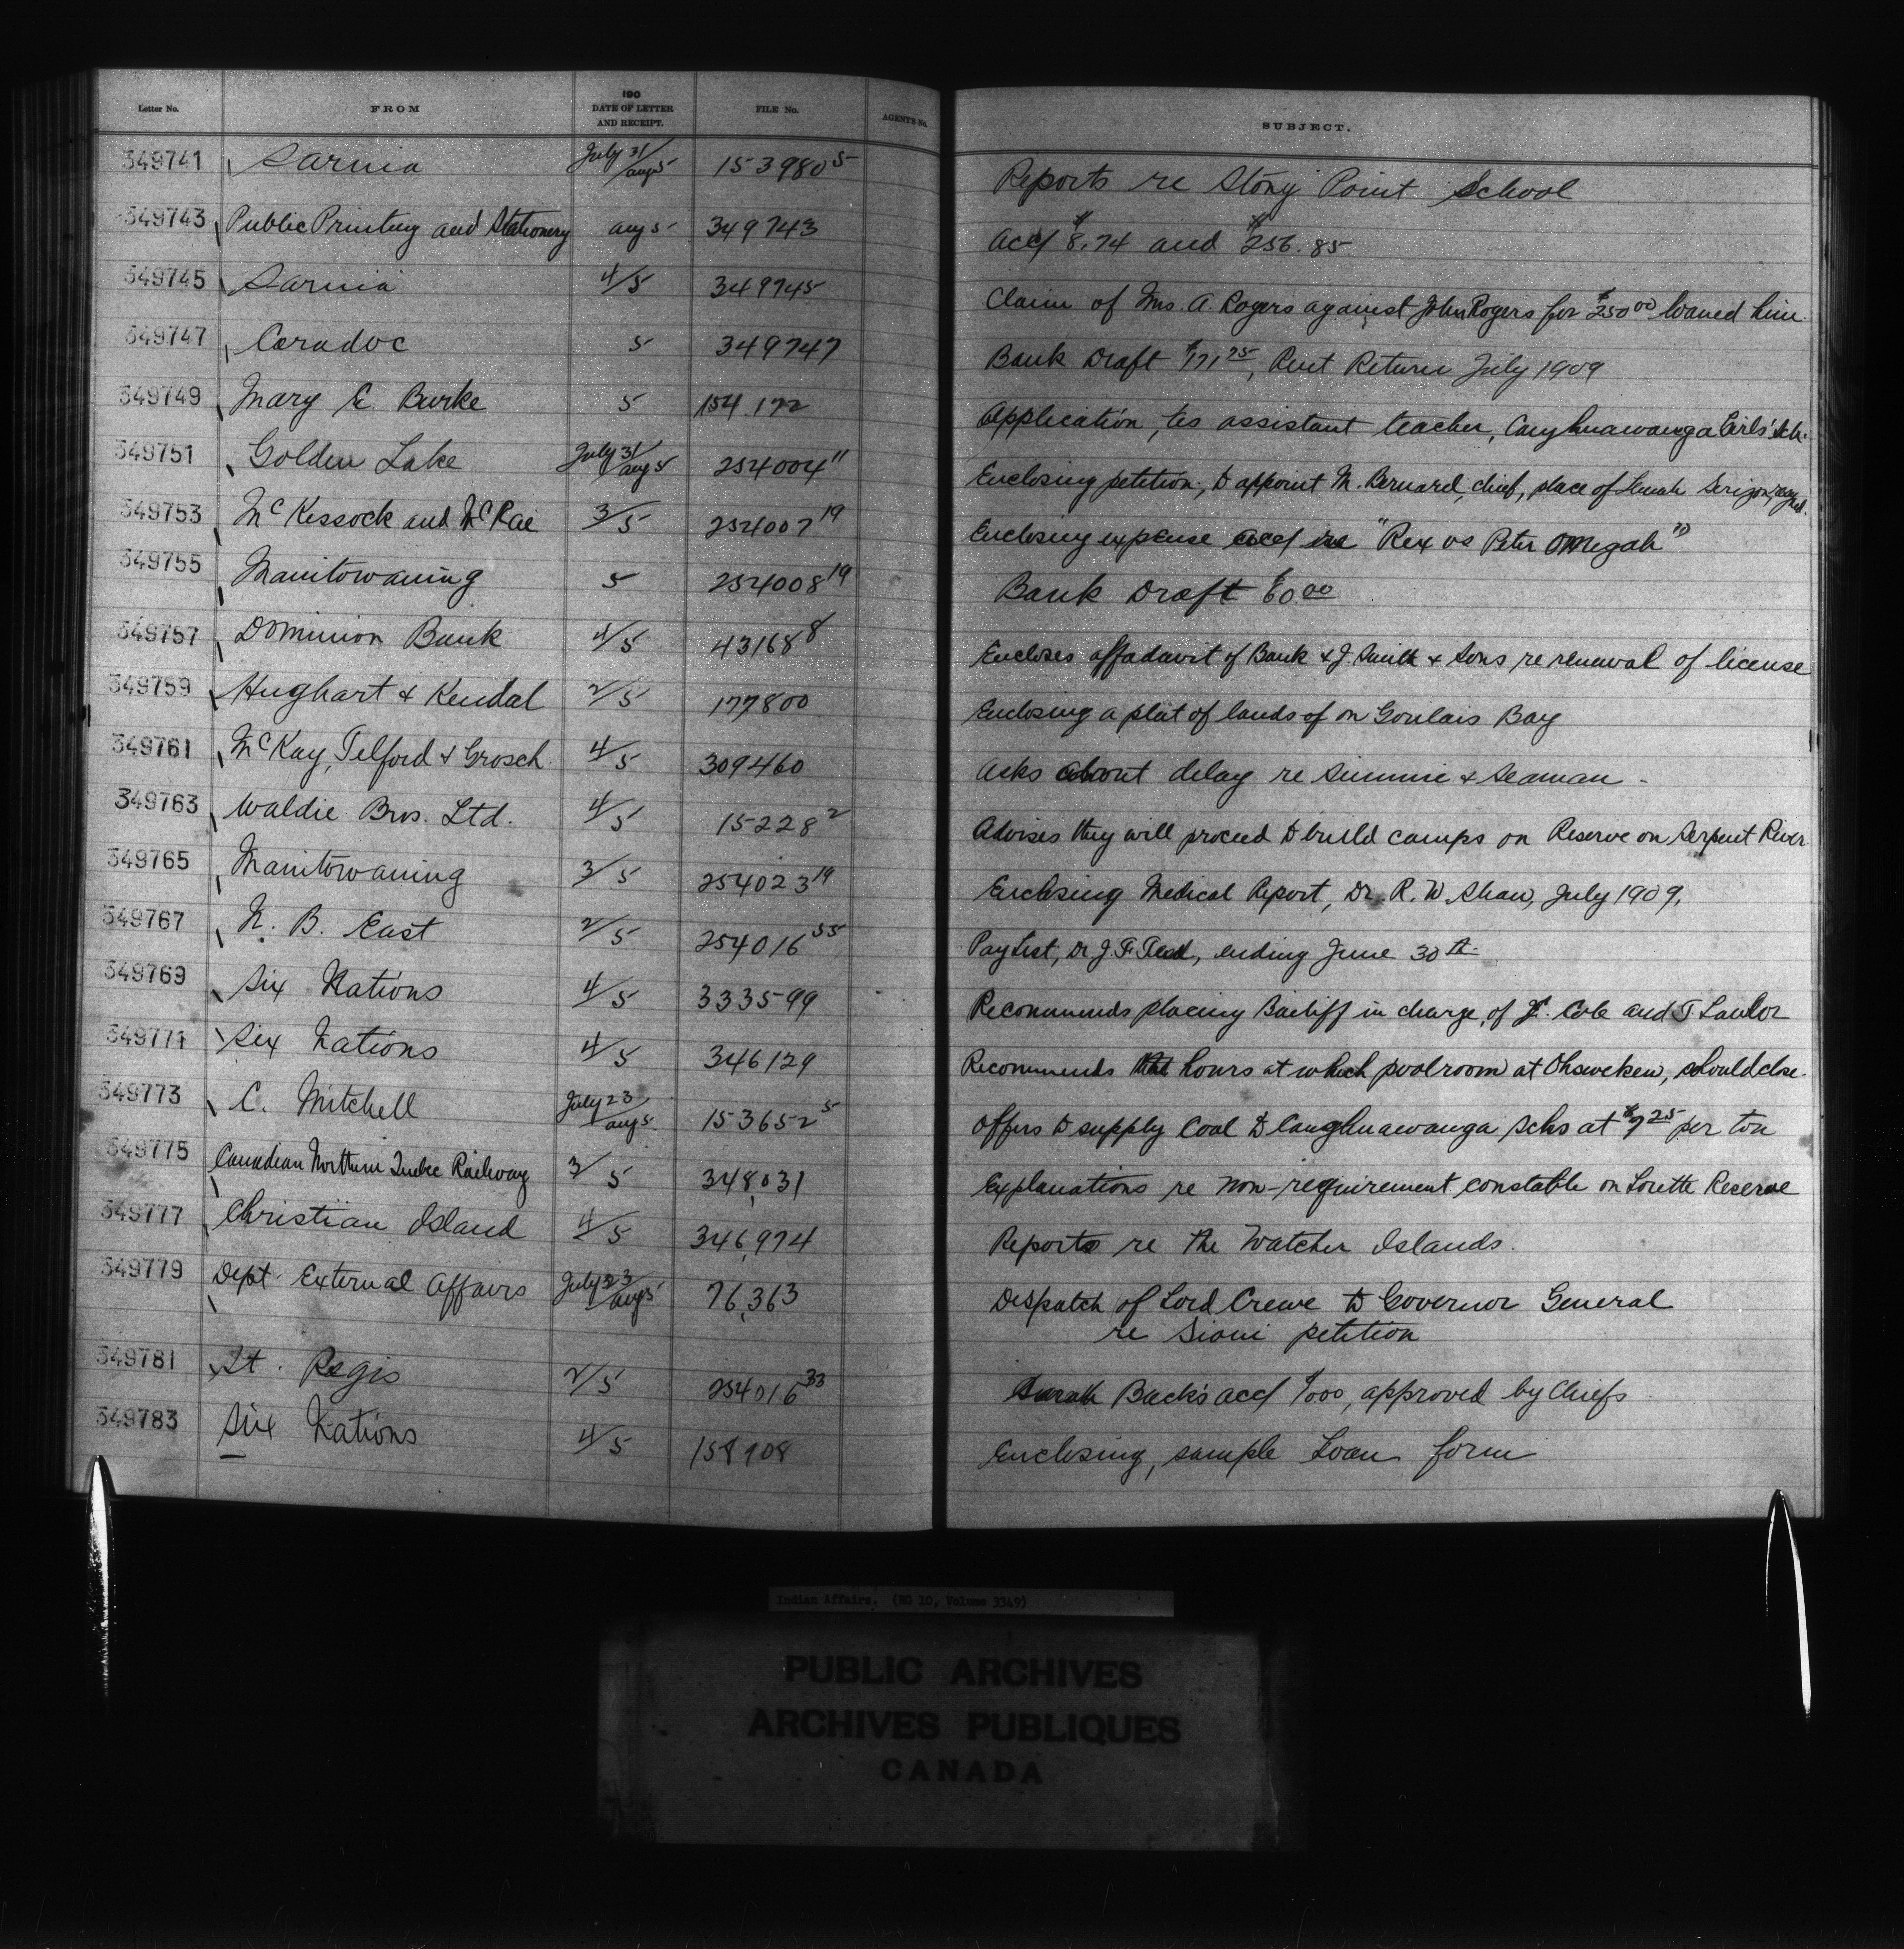 Letter No. FROM 190 DATE OF LETTER AND RECEIPT. FILE No. AGENT'S No. SUBJECT.
349741 Sarnia July 31/Aug 5 153980 5 Reports re Stony Point School
349743 Public Printing and Stationery Aug 5 349743 Acct $8.74 and $256.85
349745 Sarnia 4/5 349745 Claim of Mrs. A. Rogers against John Rogers for $250 00 loaned him.
349747 Caradoc 5 349747 Bank Draft $171 75, Rent Return July 1909
349749 Mary E. Burke 5 154.172 Application, as assistant teacher, Caughnawauga Girls' Sch.
349751 Golden Lake July 31/Aug 5 254004 11 Enclosing petition, to appoint M. Bernard, chief, place of
349753 McKessock and McRae 3/5 254007 19 Enclosing expense acct re "Rex vs Peter Omegah"
349755 Manitowaning 5 254008 19 Bank Draft $60.00
349757 Dominion Bank 4/5 43168 8 Encloses affadavit of Bank & J. Smith & Sons re renewal of license
349759 Hughart & Kendal 2/5 177800 Enclosing a plat of lands of on Goulais Bay
349761 McKay, Telford & Grosch 4/5 309460 Asks about delay re Simmie & Seaman
349763 Waldie Bros. Ltd. 4/5 15228 2 Advises they will proceed to build camps on Reserve on Serpent River
349765 Manitowaning 3/5 254023 19 Enclosing Medical Report, Dr. R. W. Shaw, July 1909.
349767 N. B. East 2/5 254016 55 Pay List, Dr J. F. ending June 30th
349769 Six Nations 4/5 333599 Recommends placing Bailiff in charge, of J. Cole and T. Lawlor
349771 Six Nations 4/5 346129 Recommends hours at which poolroom at Ohsweken, should close.
349773 C. Mitchell July 23/Aug 5 153652 5 Offers to supply Coal to Caughnawauga Schs at $7 25 per ton
349775 Canadian Northern Quebec Railway 3/5 348,031 Explanations re non-requirement constable on Lorette Reserve
349777 Christian Island 4/5 346,974 Reports re the Watcher Islands.
349779 Dept. External Affairs July 23/Aug 5 76,363 Despatch of Lord Crewe to Governor General
re Sioui petition
349781 St. Regis 2/5 254016 33 Sarah Back's acct $1.00, approved by Chiefs
349783 Six Nations 4/5 158708 Enclosing, sample Loan form
Indian Affairs. (RG 10, Volume 3349)
PUBLIC ARCHIVES
ARCHIVES PUBLIQUES
CANADA